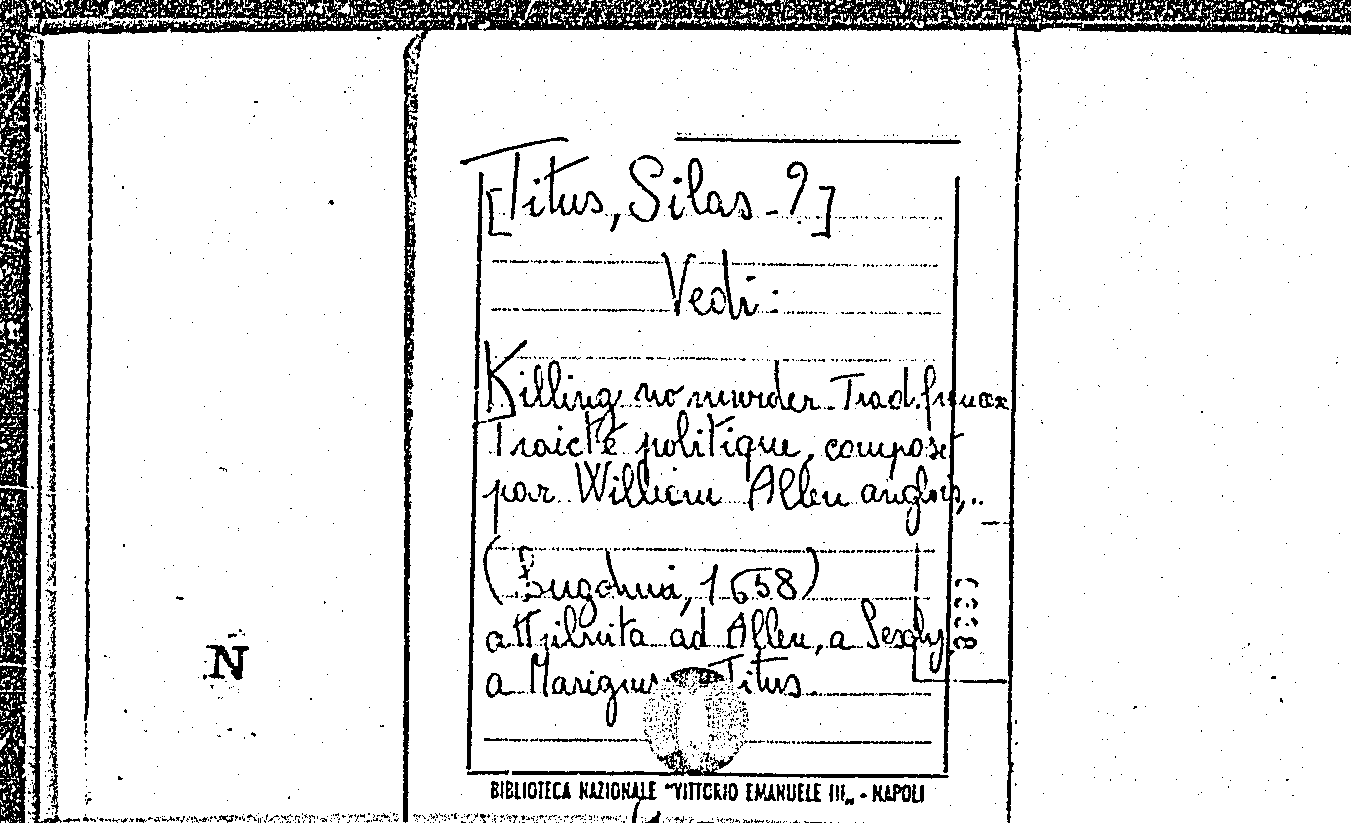 [Titus, Silas - ?]
Vedi:
Killing no murder. Trad. francx
Traicté politique, composé
par William Allen anglois,..
(Lugduni, 1658)
attribuita ad Allen, a Sexby
a Marigny Titus.
N
BIBLIOTECA NAZIONALE "VITTORIO EMANUELE III„ - NAPOLI